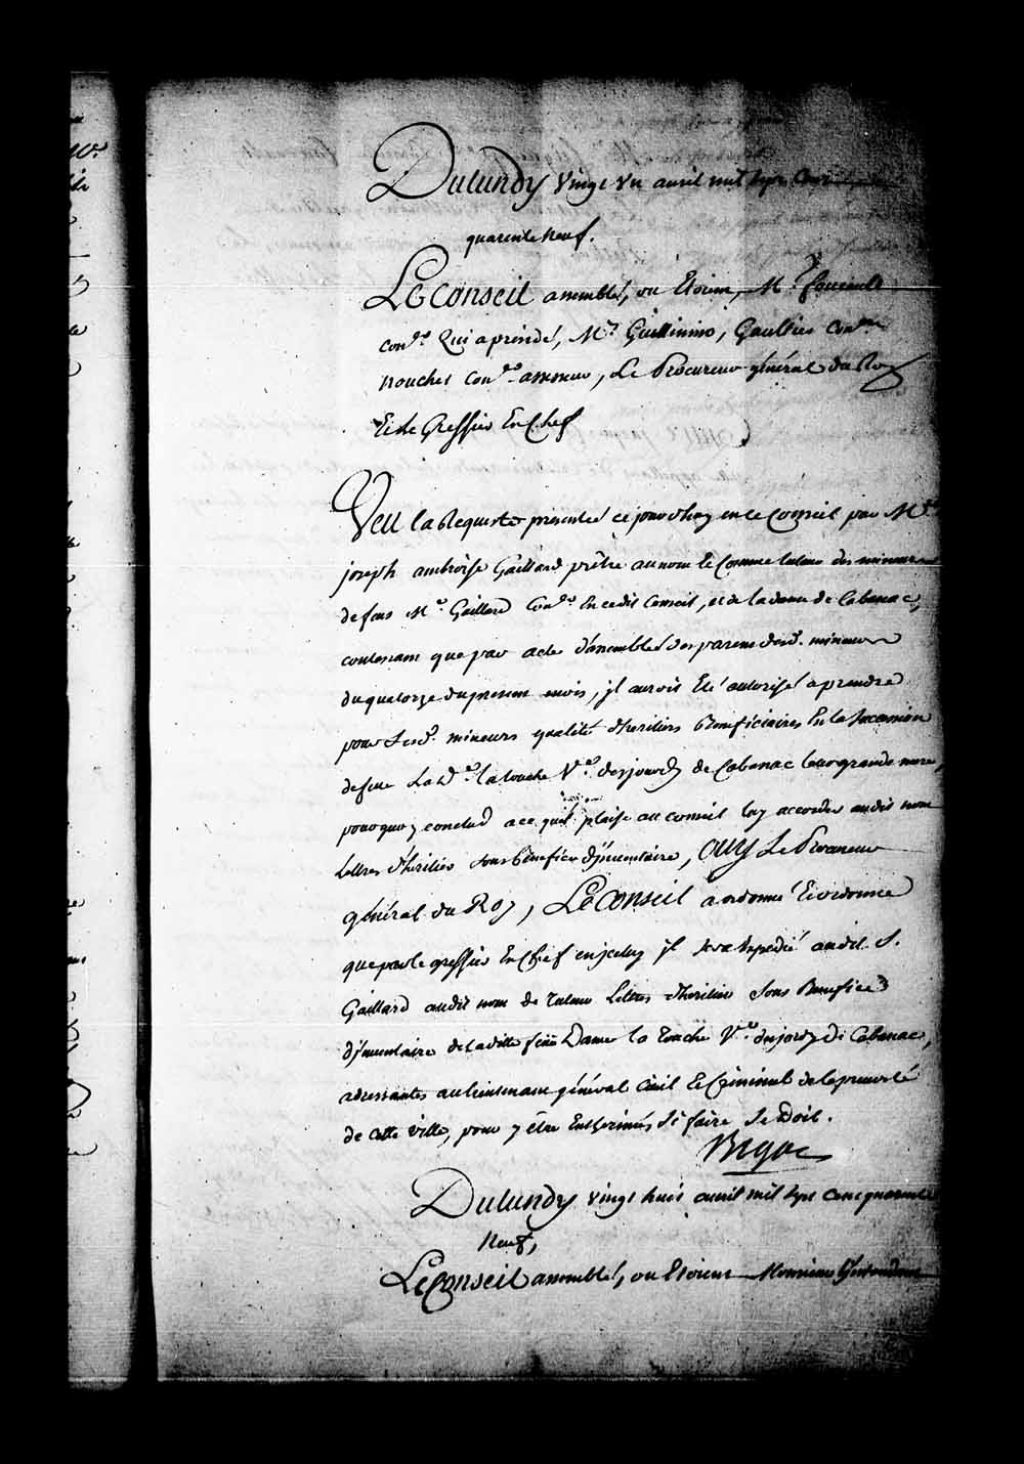 Du Lundy vingt un avril mil sept cent
quarente neuf.
Le Conseil assemblé, ou Etoient, Mr. foucault
coner. Qui a présidé, Mrs. Guillimin, Gaultier Coners
nouchet coner. assesseur, Le Procureur général du Roy
Et le Greffier En Chef
Veu la Requeste presentée ce jourdhuy en le Conseil par Mre.
joseph ambroise Gaillard prêtre au nom Et Comme tuteur des mineurs
de feus Mr. Gaillard Coner. En cedit Conseil, et de la dame de Cabanac,
contenant que par acte d'assemblée des parens desd. mineurs
du quatorze du present mois, jl auroit Eté autorisé a prendre
pour Lesd. mineurs qualité d'heritiers Beneficiaires En la Succession
de feue La de. la touche Ve. desjourdy de Cabanac leur grande mere,
pourquoy conclud a ce quil plaise au conseil luy accorder audit nom
Lettres d'heritier sous Benefice d'jnventaire, Ouy Le Procureur
général du Roy, Le Conseil a ordonné Et ordonne
que par le greffier En Chef en jceluy jl sera Expedié audit S.
Gaillard audit nom de Tuteur Lettres d'heritier Sous Benefice
d'jnventaire de ladite feüe Dame la Touche Ve. desjordy De Cabanac,
adressantes au lieutenant général Civil Et Criminel de la prevosté
de cette ville, pour y être Entherinées Si faire Se Doit.
Bigot
Du Lundy vingt huit avril mil sept cent quarente
Neuf,
Le Conseil assemblé, ou Etoient Monsieur L'Intendant